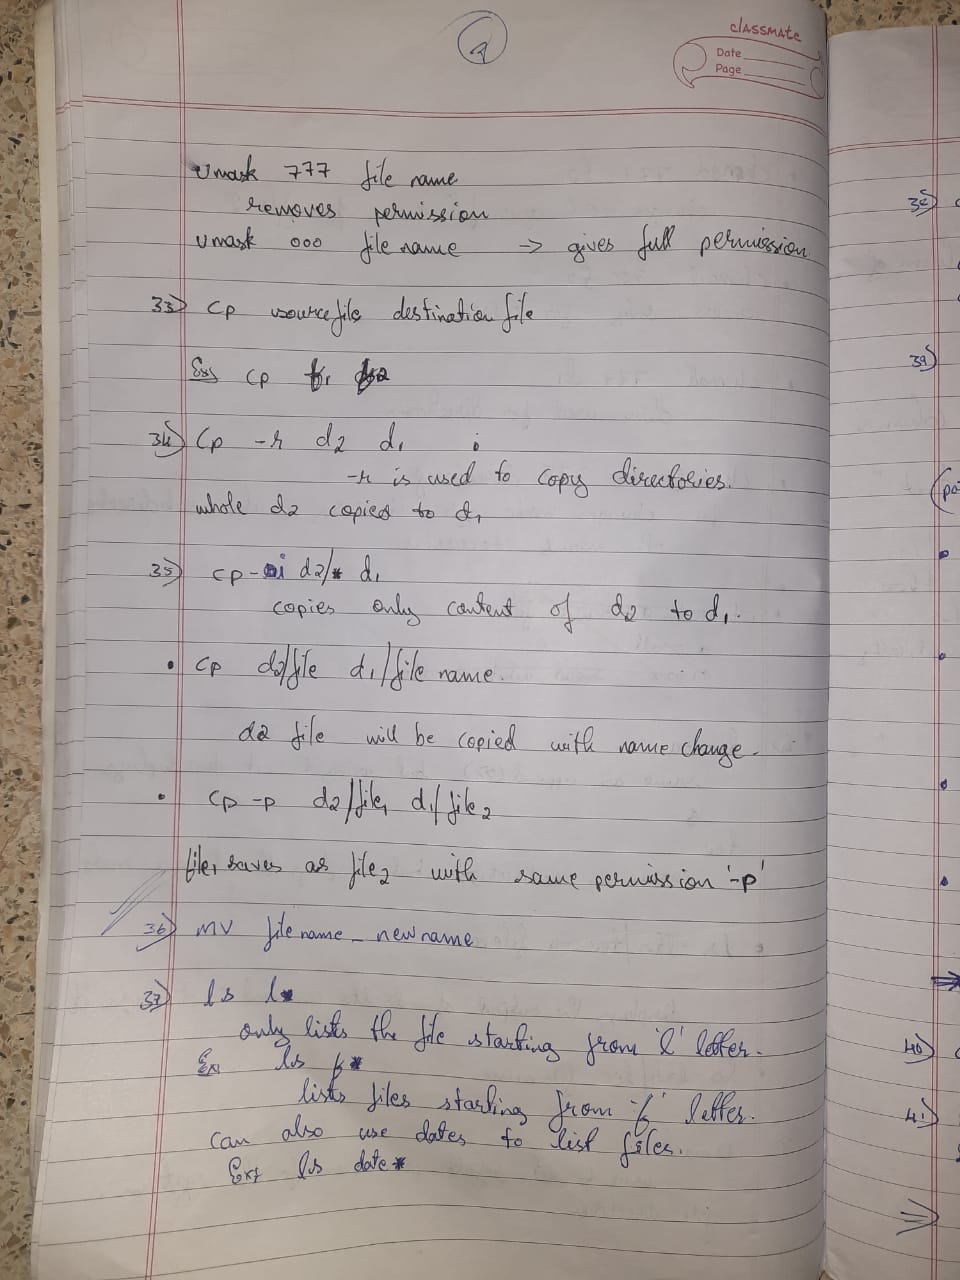 2
classmate
Date
Page
Umask 777 file name
removes permission
Umask 000 file name -> gives full permission.
33) Cp sourcefile destination file
Ex) cp f1 f2
34) Cp -r d2 d1
-r is used to copy directories.
whole d2 copied to d1
35) cp -i d2/* d1
copies only content of d2 to d1.
• Cp d2/file d1/file name.
d2 file will be copied with name change.
• Cp -p d2/file1 d1/file2
file1 saves as file2 with same permission '-p'
36) mv file name - new name
37) ls l*
only lists the file starting from 'l' letter.
Ex ls f*
lists files starting from 'f' letter.
Can also use dates to list files.
Ex: ls date*
38)
39)
40)
41)